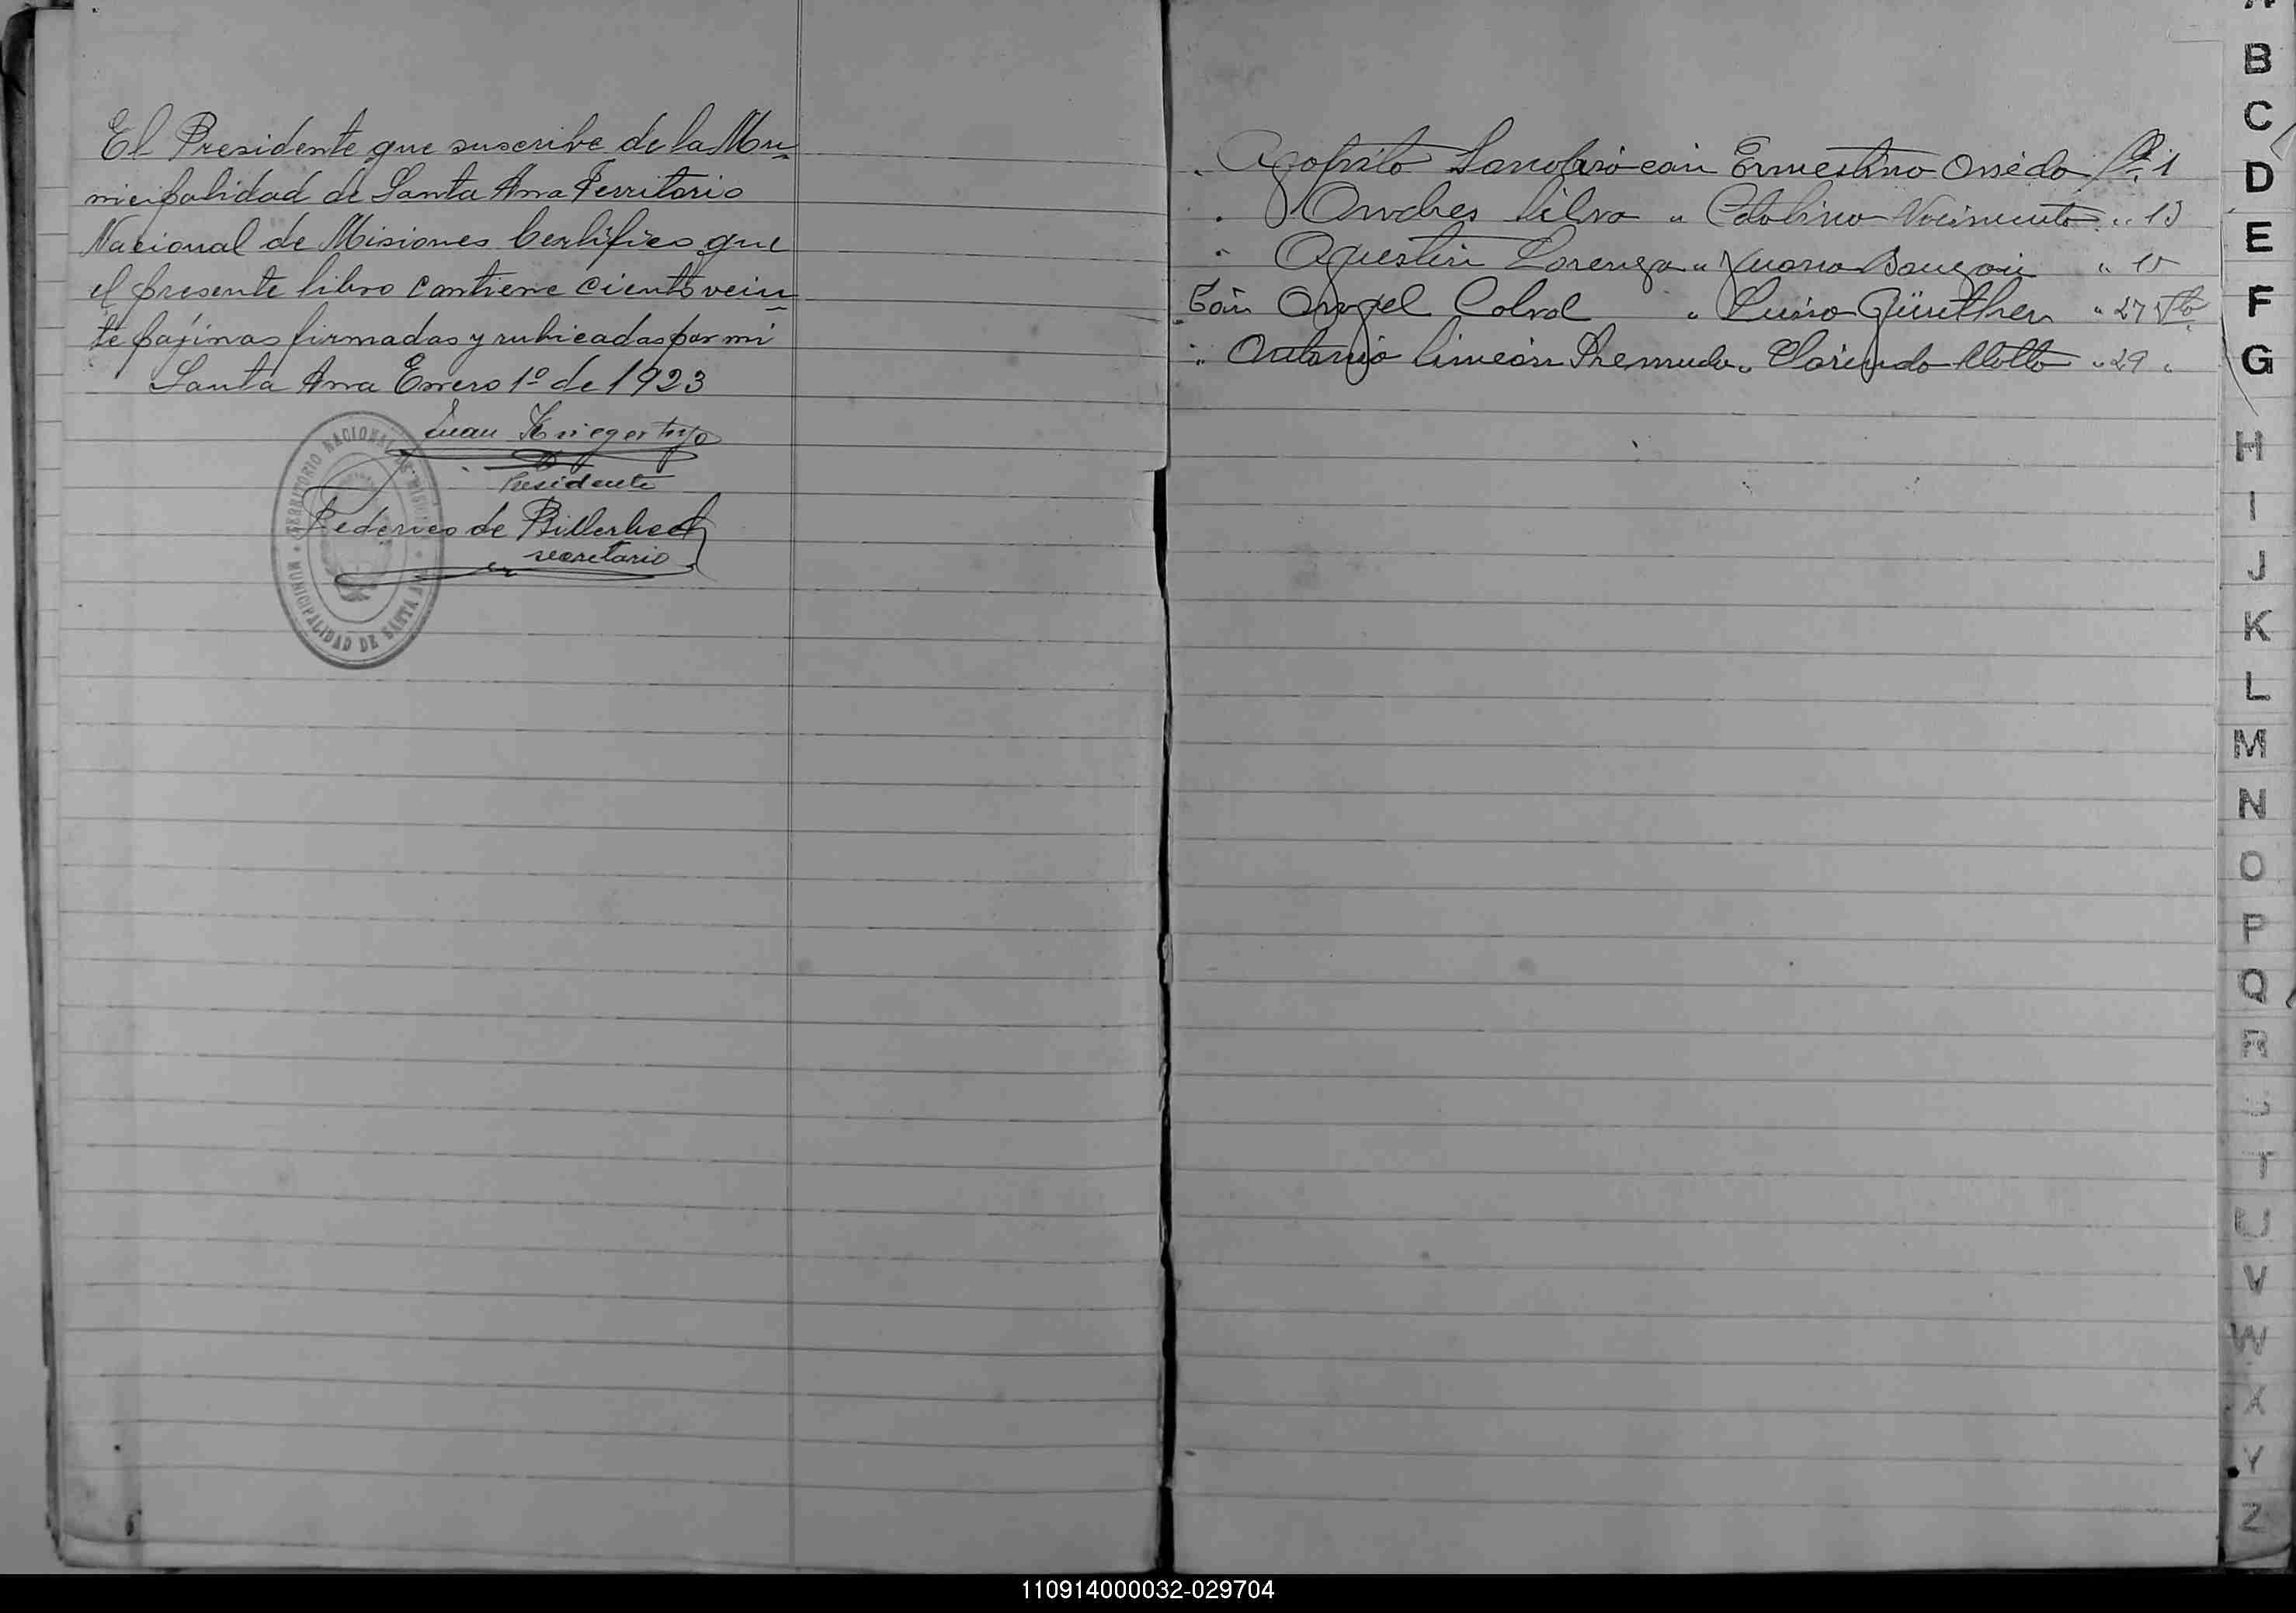 El Presidente que suscribe de la Mu-
nicipalidad de Santa Ana Territorio
Nacional de Misiones Certifico que
el presente libro contiene ciento vein-
te pájinas firmadas y rubicadas por mi
Santa Ana Enero 1º de 1923
Juan Krieger hijo
Presidente
Federico de Billerbeck
secretario
TERRITORIO NACIONAL DE MISIONES
MUNICIPALIDAD DE SANTA ANA
Agapito con Ernestina Fº 1
Andres Silva " Catalina " 13
Agustin Lorenzo " Juana " 15
Angel Cabral " Luisa Günther " 27 Vto
" Antonio Simeón " Clorinda Motta " 29 "
A
B
C
D
E
F
G
H
I
J
K
L
M
N
O
P
Q
R
S
T
U
V
W
X
Y
Z
110914000032-029704